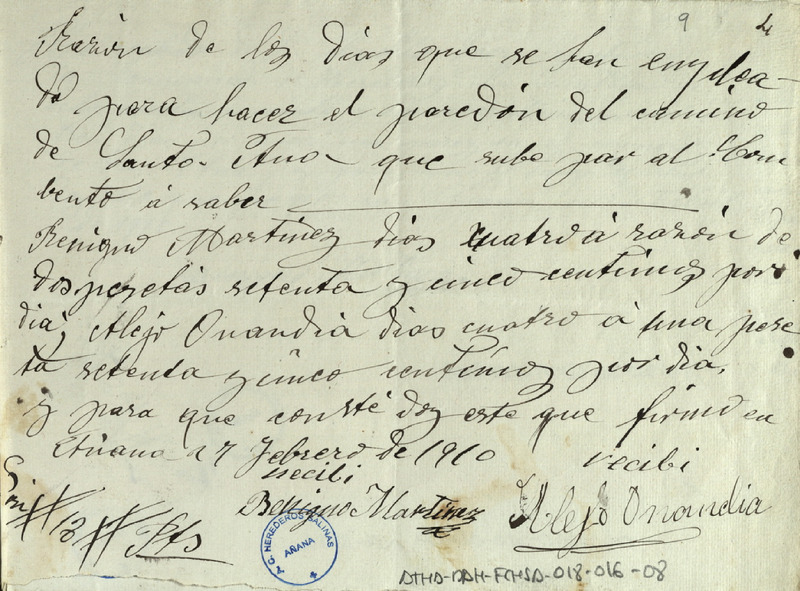 9 4
Razón de los dias que se han emplea-
do para hacer el paredón del camino
de Santa Ana que sube par al Com
bento á saber
Benigno Martinez dias cuatro á razón de
dos pesetas setenta y cinco centimos por
dia, Alejo Onandia dias cuatro á una pese
ta setenta y cinco centimos por dia,
y para que consté doy este que firmo en
Añana 27 Febrero de 1910
recibi recibi
Benigno Martinez Alejo Onandia
Son
# 18 # Pts
T.C. HEREDEROS SALINAS
AÑANA
ATHA-DAH-FCHSA-018-016-08